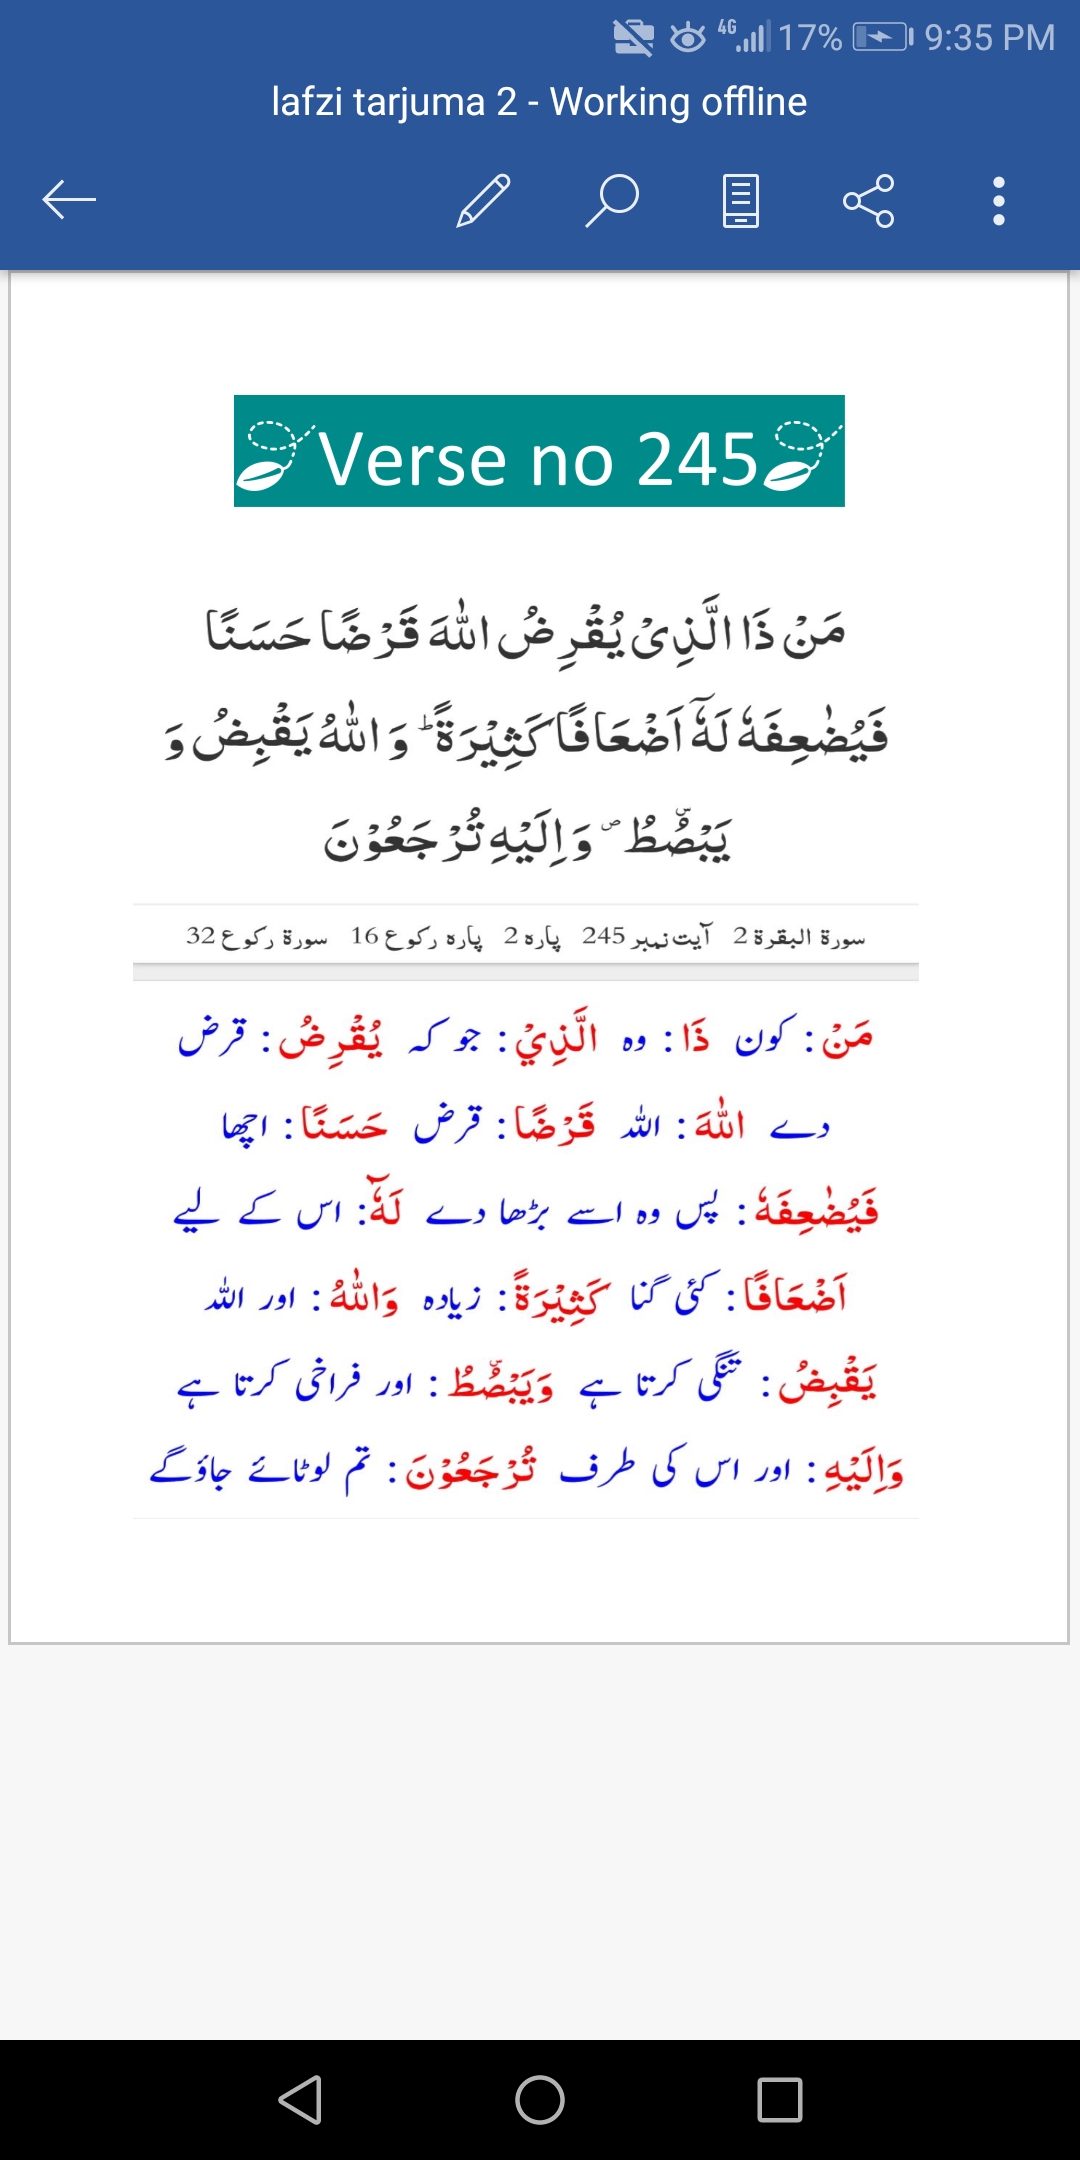 4G 17% 9:35 PM
lafzi tarjuma 2 - Working offline
Verse no 245
مَنْ ذَا الَّذِیْ یُقْرِضُ اللّٰهَ قَرْضًا حَسَنًا
فَیُضٰعِفَهٗ لَهٗۤ اَضْعَافًا كَثِیْرَةًؕ وَ اللّٰهُ یَقْبِضُ وَ
یَبْصُۜطُ۪ وَ اِلَیْهِ تُرْجَعُوْنَ
سورۃ البقرۃ 2 آیت نمبر 245 پارہ 2 پارہ رکوع 16 سورۃ رکوع 32
مَنْ : کون ذَا : وہ الَّذِيْ : جو کہ يُقْرِضُ : قرض
دے اللّٰهَ : اللہ قَرْضًا : قرض حَسَنًا : اچھا
فَيُضٰعِفَهٗ : پس وہ اسے بڑھا دے لَهٗٓ : اس کے لیے
اَضْعَافًا : کئی گنا كَثِيْرَةً : زیادہ وَاللّٰهُ : اور اللہ
يَقْبِضُ : تنگی کرتا ہے وَيَبْصُۜطُ : اور فراخی کرتا ہے
وَاِلَيْهِ : اور اس کی طرف تُرْجَعُوْنَ : تم لوٹائے جاؤگے